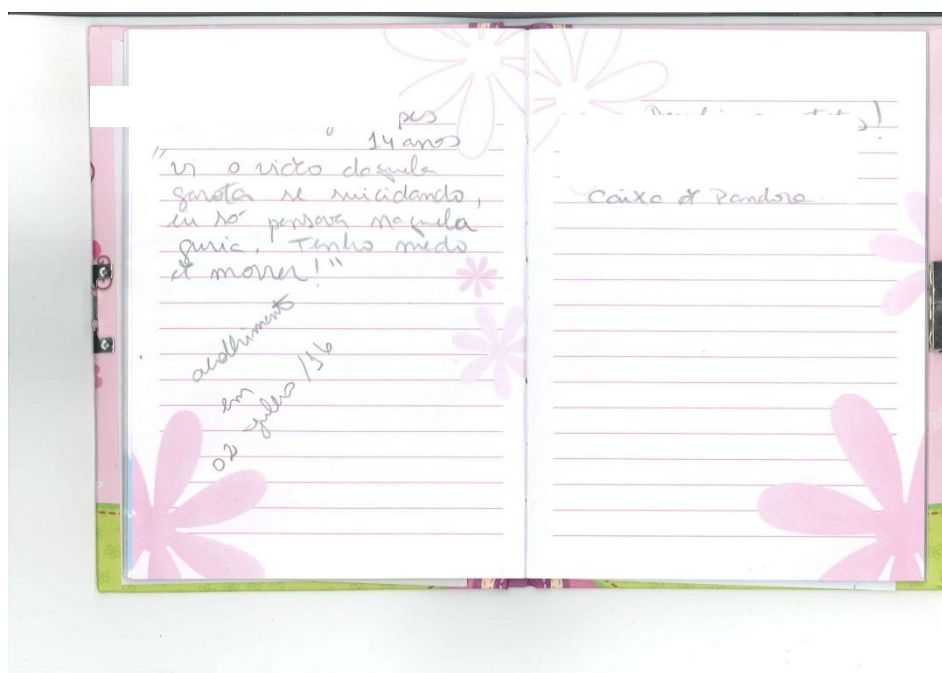 14 anos
"Vi o video daquela
garota se suicidando,
eu só pensava naquela
guria. Tenho medo
de morrer!"
acolhimento
em
02 julho /16
Caixa de Pandora